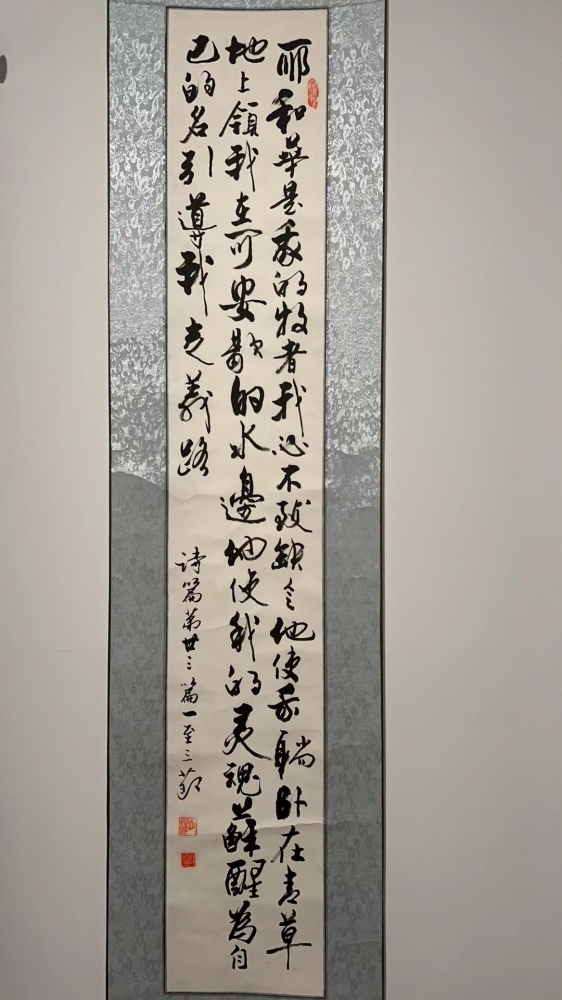 耶和華是我的牧者我必不致缺乏他使我躺卧在青草
地上領我在可安歇的水邊他使我的灵魂蘇醒為自
己的名引導我走義路
诗篇第廿三篇一至三節